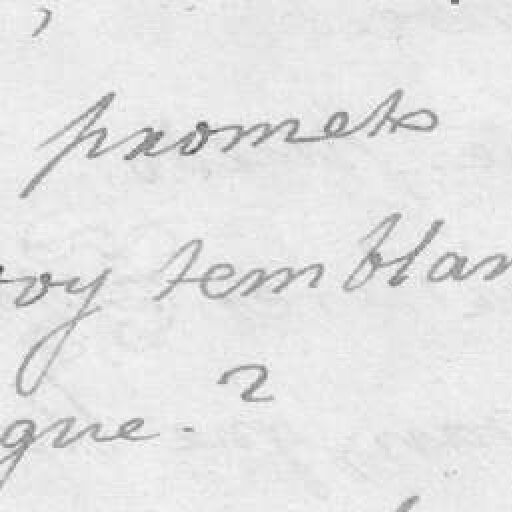 promets
oy temblan
gue. 2